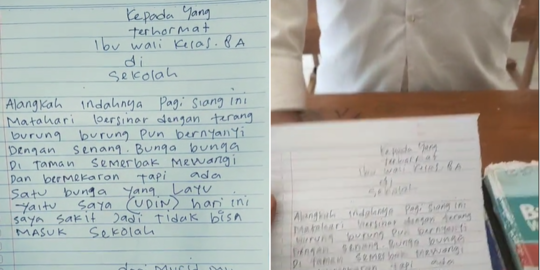 Kepada Yang
terhormat
Ibu wali Kelas. 8A
di
Sekolah
Alangkah indahnya Pagi siang ini
Matahari bersinar dengan terang
burung burung Pun bernyanyi
Dengan senang. Bunga bunga
Di Taman Semerbak Mewangi
Dan bermekaran tapi ada
Satu bunga yang Layu
Yaitu Saya (UDIN) hari ini
saya sakit Jadi Tidak bisA
MASUK Sekolah
Kepada Yang
terhormat
Ibu wali Kelas 8A
di
Sekolah
Alangkah indahnya Pagi siang ini
Matahari bersinar dengan terang
burung burung Pun bernyanyi
Dengan senang. Bunga bunga
Di Taman Semerbak Mewangi
bermekaran tapi ada